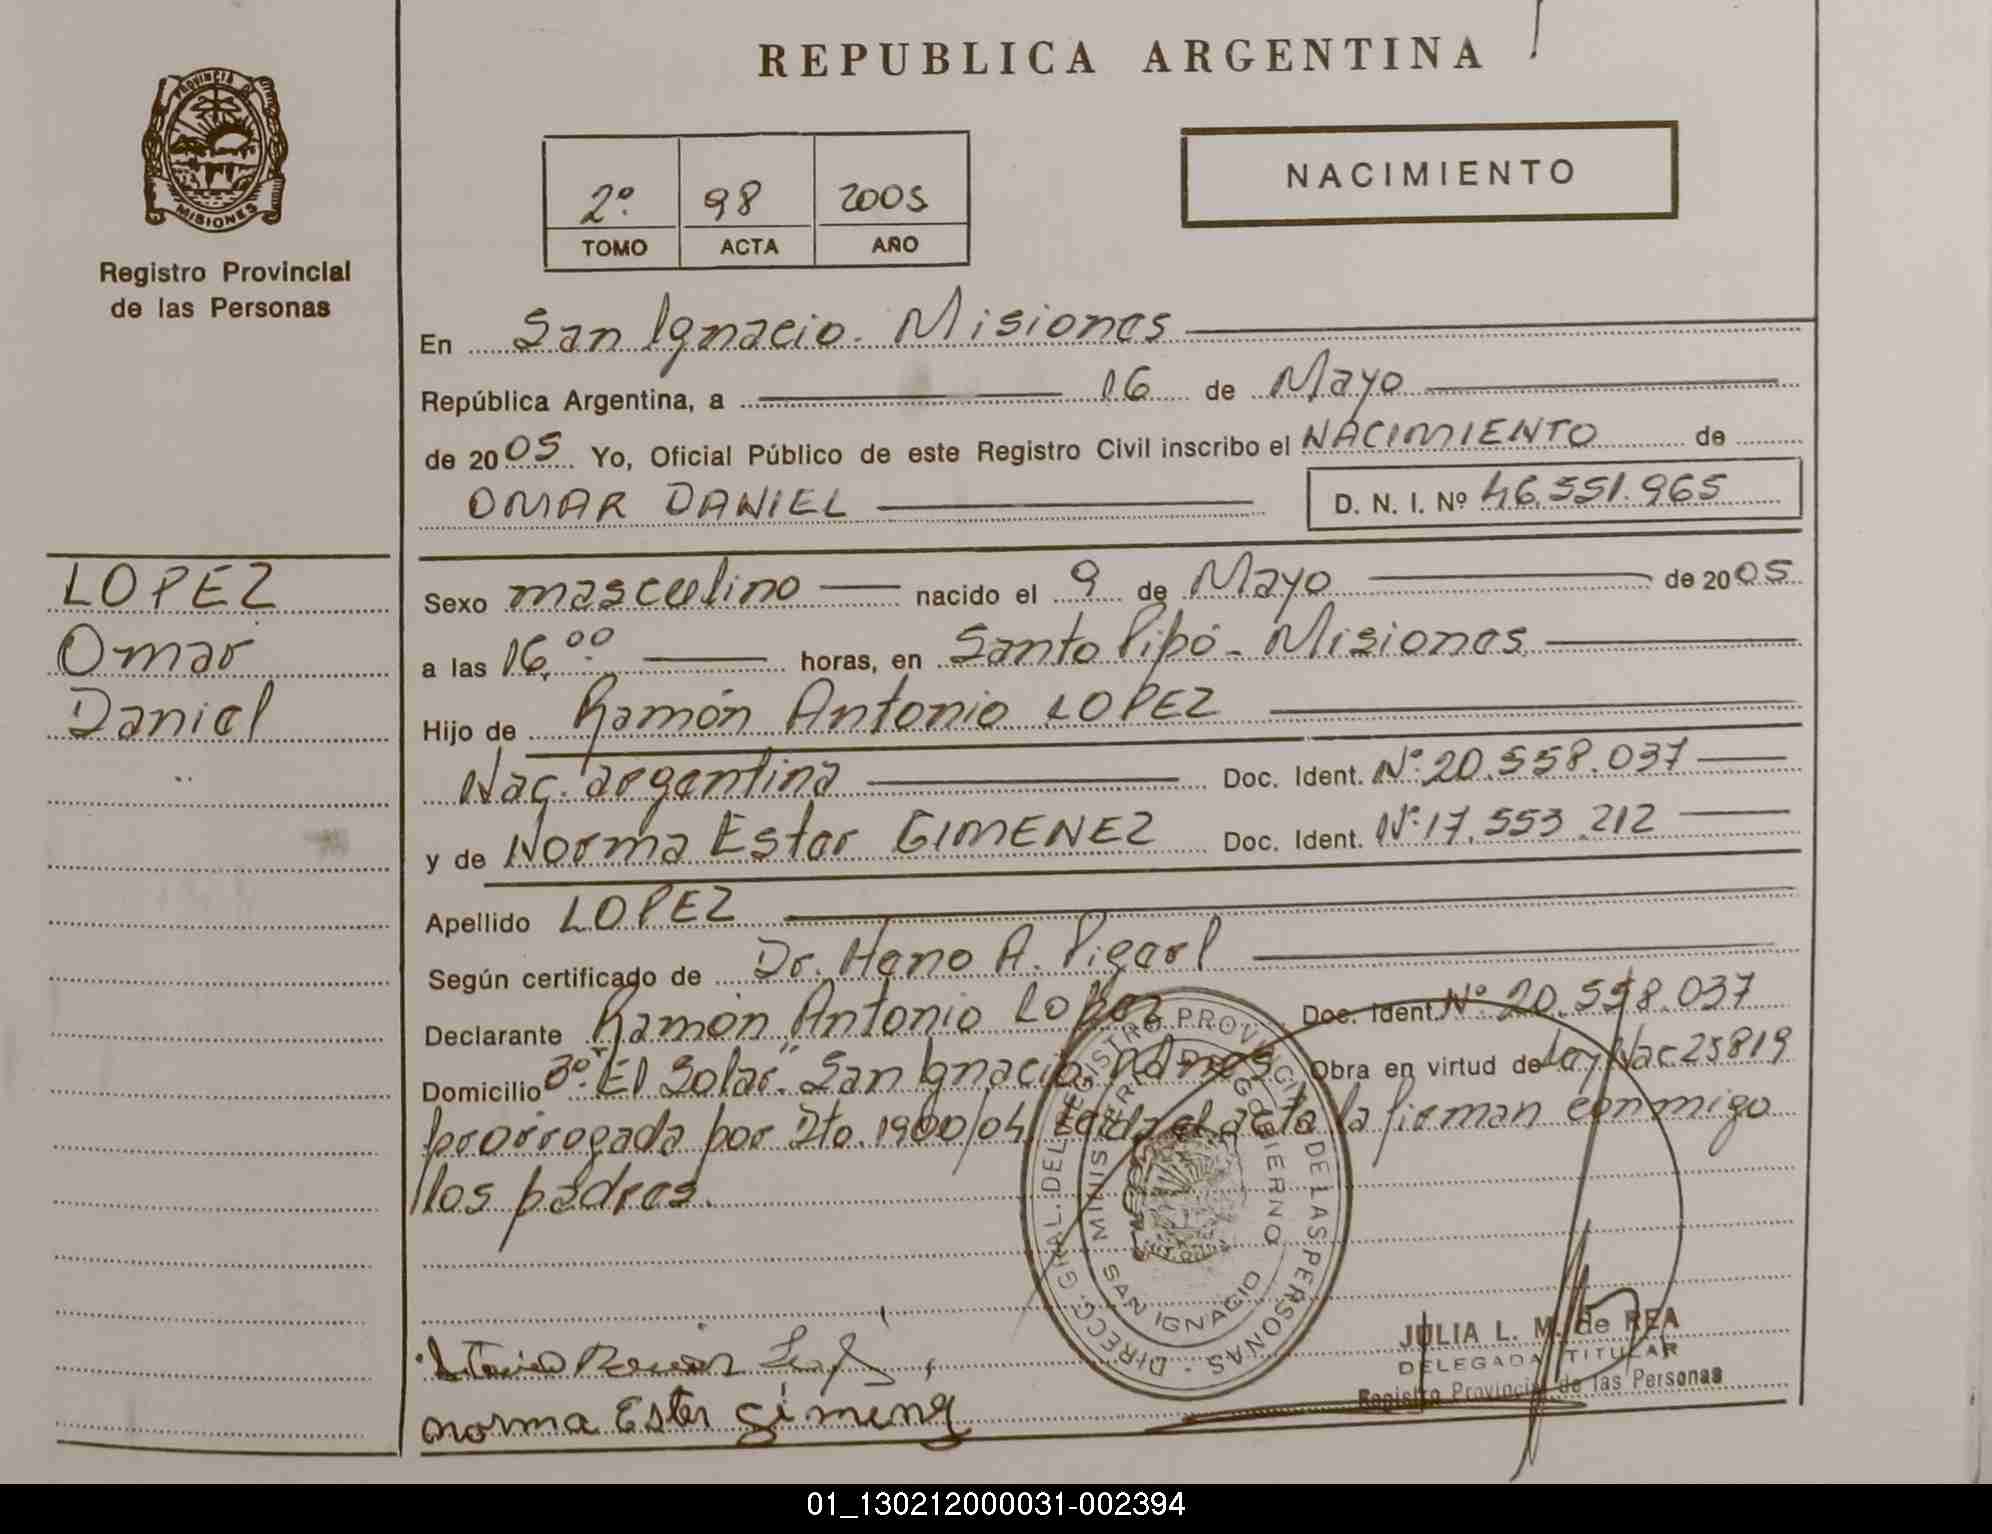 REPUBLICA ARGENTINA
PROVINCIA DE
MISIONES
Registro Provincial
de las Personas
2º 98 2005
TOMO ACTA AÑO
NACIMIENTO
En San Ignacio - Misiones
República Argentina, a 16 de Mayo
de 2005 Yo, Oficial Público de este Registro Civil inscribo el NACIMIENTO de
OMAR DANIEL D. N. I. Nº 46.551.965
LOPEZ
Omar
Daniel
Sexo masculino nacido el 9 de Mayo de 2005
a las 16,00 horas, en Santo Pipó - Misiones
Hijo de Ramón Antonio LOPEZ
Nac. argentina Doc. Ident. Nº 20.558.037
y de Norma Ester GIMENEZ Doc. Ident. Nº 17.553.212
Apellido LOPEZ
Según certificado de Dr. A.
Declarante Ramón Antonio Lopez Doc. Ident. Nº 20.558.037
Domicilio Bº "El Solar" San Ignacio, Mnes Obra en virtud de Ley Nac 25819
prorrogada por Dto. 1900/04 Leida el acta la firman conmigo
los padres.
DIRECC. GRAL. DEL REGISTRO PROVINCIAL DE LAS PERSONAS
MINISTERIO DE GOBIERNO
SAN IGNACIO
JULIA L. M. de REA
DELEGADA TITULAR
Registro Provincial de las Personas
norma Ester gimenez
01_130212000031-002394